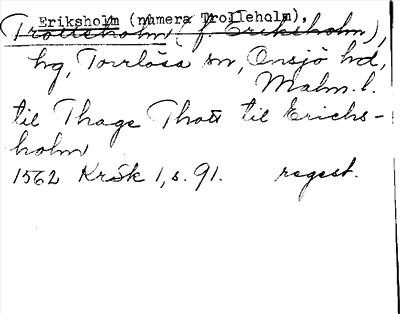 Eriksholm (numera Trolleholm).
Trolleholm (f. Eriksholm),
hg, Torrlösa sn, Onsjö hd,
Malm. l.
til Thage Thott til Erichs-
holm
1562 KrSk 1, s. 91. regest.